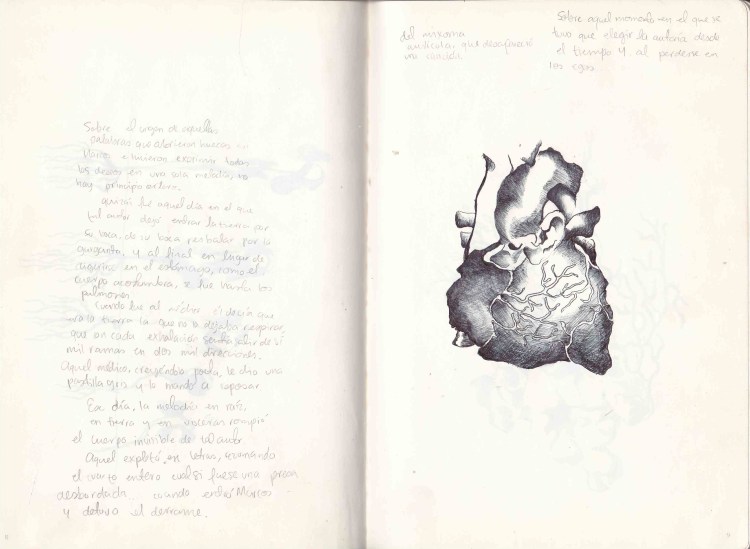 Sobre el origen de aquellas
palabras que abrieron huecos en
Mario e hicieron exprimir todos
los deseos en una sola melodía, no
hay principio entero.
quizás fue aquel día en el que
tal autor dejó entrar la tierra por
su boca, de su boca resbalar por la
garganta, y al final en lugar de
en el estómago, como el
cuerpo acostumbra, se fue hacia los
pulmones
cuando fue al médico si decía que
era la tierra la que no lo dejaba respirar,
que en cada exhalación sentía salir de sí
mil ramas en dos mil direcciones.
Aquel médico, creyéndolo poeta, le dio una
pastilla y lo mandó a reposar
Ese día, la melodía en raíz,
en tierra y en
el cuerpo invisible de tal autor
Aquel explotó en letras,
el cuarto entero cual si fuese una presa
desbordada cuando entró Marcos
y detuvo el derrame.
del
que desapareció
una
Sobre aquel momento en el que se
tuvo que elegir la autoría desde
el tiempo y al perderse en
los egos.
8
9